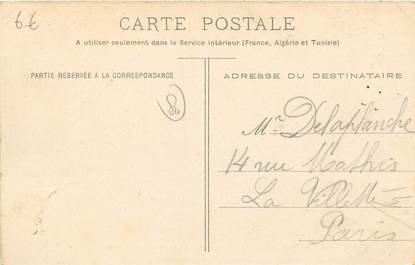 6€
CARTE POSTALE
A utiliser seulement dans le Service intérieur (France, Algérie et Tunisie)
PARTIE RÉSERVÉE A LA CORRESPONDANCE
ADRESSE DU DESTINATAIRE
88
Mr Delaplanche
14 rue Mathis
La Villette
Paris